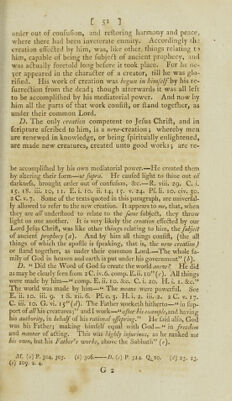 [ 51 ]
under out of confusion, and restoring harmony and peace,
where there had been inveterate enmity. Accordingly the
creation effected by him, was, like other, things relating to
him, capable of being the subject of ancient prophecy, and
was actually foretold long before it took place. For he ne-
ver appeared in the character of a creator, till he was glo-
rified. His work of creation was begun in himself by his re-
surrection from the dead; though afterwards it was all left
to be accomplished by his mediatorial power. And now by
him all the parts of that work consist, or stand together, as
under their common Lord.
D. The only creation competent to Jesus Christ, and in
scripture ascribed to him, is a new-creation; whereby men
are renewed in knowledge, or being spiritually enlightened,
are made new creatures, created unto good works; are re-
be accomplished by his own mediatorial power.—He created them
by altering their form—ut supra. He caused light to shine out of
darkness, brought order out of confusion, &c.—R. viii. 29. C. i.
15. 18. iii. 10, 11. E. i. 10. ii. 14, 15. v. 24. Ps. li. 10. civ. 30.
2 C. v. 7. Some of the texts quoted in this paragraph, are universal-
ly allowed to refer to the new creation. It appears to me, that, when
they are all understood to relate to the same subject, they throw
light on one another. It is very likely the creation effected by our
Lord Jesus Christ, was like other things relating to him, the subject
of ancient prophecy (a). And by him all things consist, (the all
things of which the apostle is speaking, that is, the new creation)
or stand together, as under their common Lord.—The whole fa-
mily of God in heaven and earth is put under his government" (b).
D. "Did the Word of God create the world anew? He did
as may be clearly seen from 2 C. iv. 6. comp. E. ii. 10" (c). All things
were made by him—" comp. E. ii. 10. &c. C. i. 20. H. i. 1. &c."
The world was made by him—" The means were powerful. See
E. ii. 10. iii. 9. 1 S. xii. 6. Ps. c. 3. H. i. 2. iii. 2. 2 C. v. 17.
C. iii. 10. G. vi. 15" (d). The Father worketh hitherto—" in sup-
port of all his creatures;" and I work—" after his example, and having
his authority, in behalf of his rational offspring." He said also, God
was his Father; making himself equal with God—" in freedom
and manner of acting. This was highly injurious, as he ranked not
his own, but his Father's works, above the Sabbath" (e).
G 2